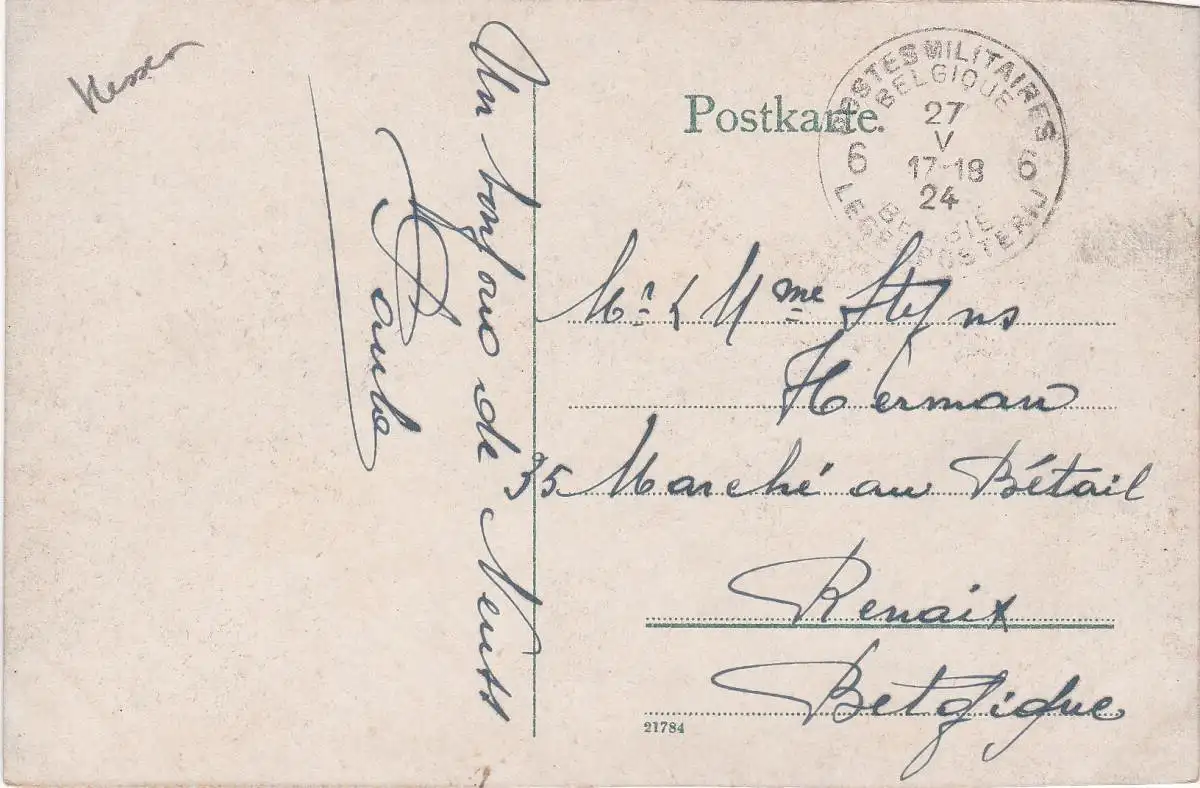 Postkarte.
POSTES MILITAIRES
BELGIQUE
27
V
17-18
24
6 6
BELGIË
LEGERPOSTERIJ
Un bonjour de Neuss
Mr & Mme Steyns
Herman
35 Marché au Bétail
Renaix
Belgique
21784